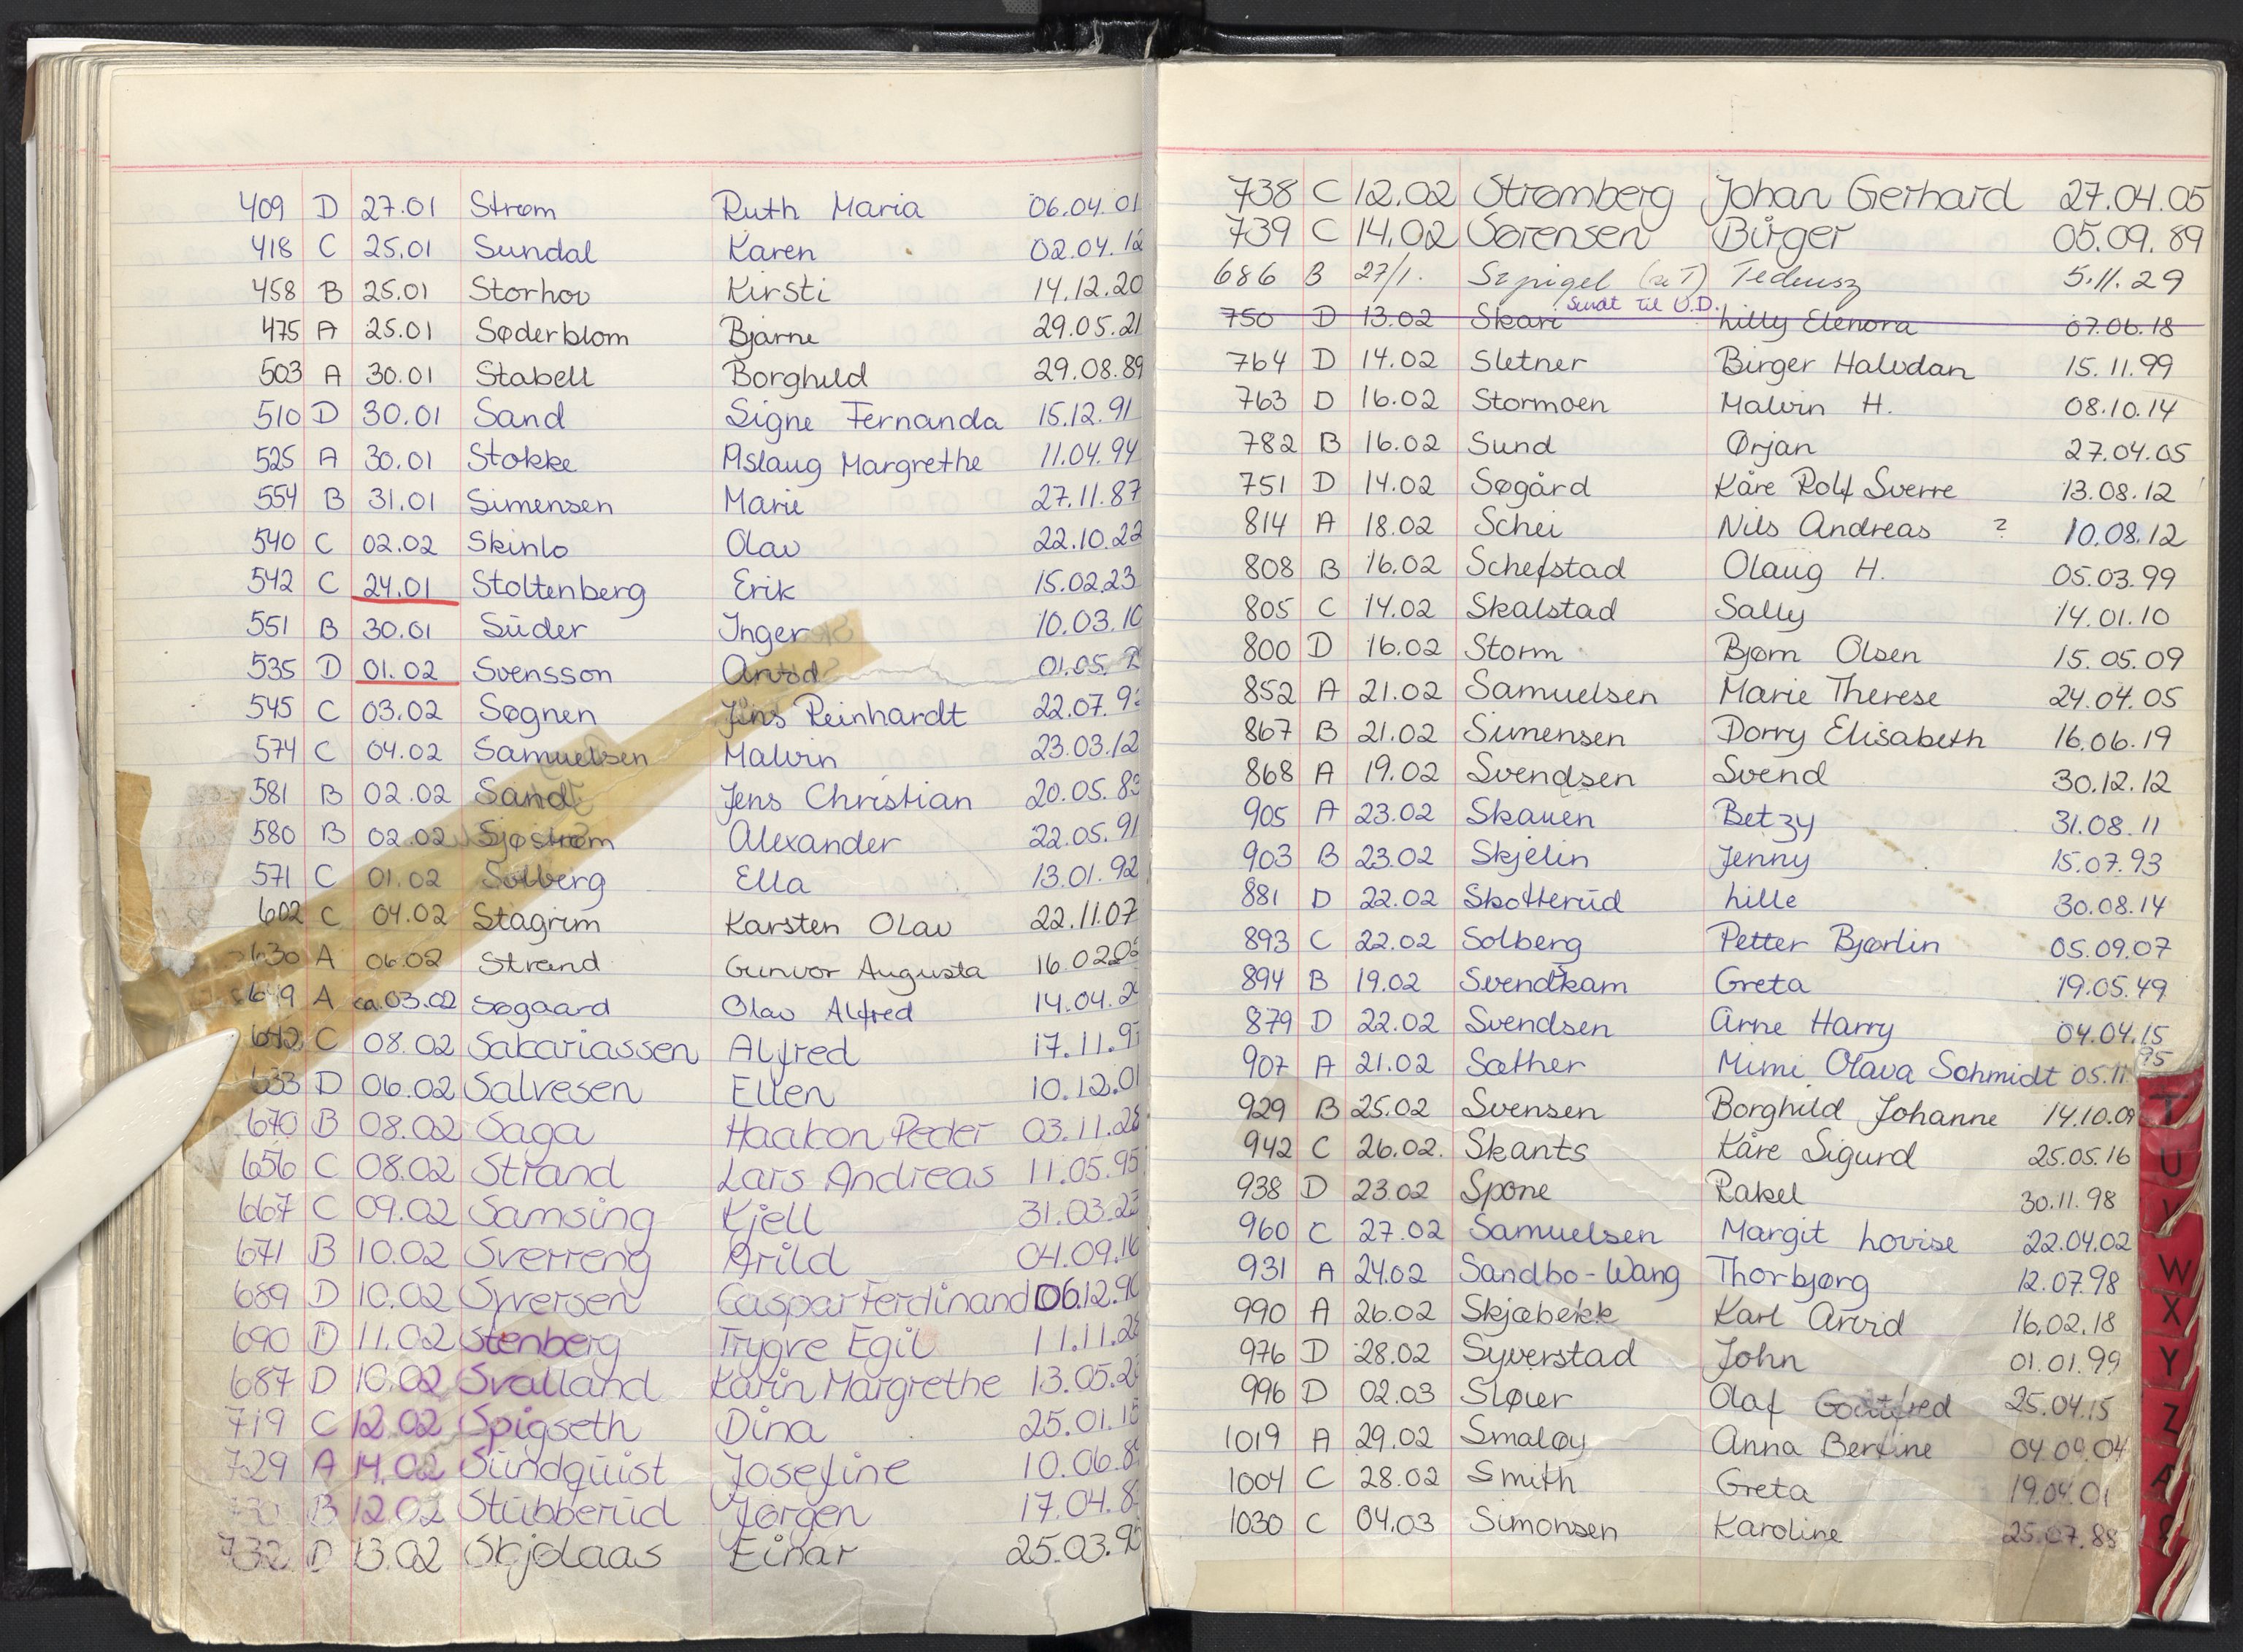 409 D 27.01 Strøm Ruth Maria 06.04.01
418 C 25.01 Sundal Karen 02.04.12
458 B 25.01 Storhov Kirsti 14.12.20
475 A 25.01 Søderblom Bjarne 29.05.21
503 A 30.01 Stabell Borghild 29.08.89
510 D 30.01 Sand Signe Fernanda 15.12.91
525 A 30.01 Stokke Aslaug Margrethe 11.04.94
554 B 31.01 Simensen Marie 27.11.87
540 C 02.02 Skinlo Olav 22.10.22
542 C 24.01 Stoltenberg Erik 15.02.23
551 B 30.01 Süder Inger 10.03.10
535 D 01.02 Svensson Arvid 01.05.
545 C 03.02 Søgnen Jens Reinhardt 22.07.9
574 C 04.02 Samuelsen Malvin 23.03.12
581 B 02.02 Sand Jens Christian 20.05.83
580 B 02.02 Sjøstrøm Alexander 22.05.91
571 C 01.02 Solberg Ella 13.01.92
602 C 04.02 Stagrim Karsten Olav 22.11.07
630 A 06.02 Strand Gunvor Augusta 16.02.05
649 A ca.03.02 Søgaard Olav Alfred 14.04.2
642 C 08.02 Sakariassen Alfred 17.11.97
633 D 06.02 Salvesen Ellen 10.12.01
670 B 08.02 Saga Haakon Peder 03.11.28
656 C 08.02 Strand Lars Andreas 11.05.95
667 C 09.02 Samsing Kjell 31.03.23
671 B 10.02 Sverreng Arild 04.09.16
689 D 10.02 Syversen Caspar Ferdinand 06.12.90
690 D 11.02 Stenberg Trygve Egil 11.11.28
687 D 10.02 Svalland Karin Margrethe 13.05.2
719 C 12.02 Spigseth Dina 25.01.15
729 A 14.02 Sundquist Josefine 10.06.8
B 12.02 Stubberud Jørgen 17.04.8
732 D 13.02 Skjolaas Einar 25.03.9
738 C 12.02 Strømberg Johan Gerhard 27.04.05
739 C 14.02 Sørensen Birger 05.09.89
686 B 27/1. Szpigel (se T) Tedeusz 5.11.29
Sendt til U.D.
750 D 13.02 Skari Lilly Elenora 07.06.18
764 D 14.02 Sletner Birger Halvdan 15.11.99
763 D 16.02 Stormoen Malvin H. 08.10.14
782 B 16.02 Sund Ørjan 27.04.05
751 D 14.02 Søgård Kåre Rolf Sverre 13.08.12
814 A 18.02 Schei Nils Andreas ? 10.08.12
808 B 16.02 Schefstad Olaug H. 05.03.99
805 C 14.02 Skalstad Sally 14.01.10
800 D 16.02 Storm Bjørn Olsen 15.05.09
852 A 21.02 Samuelsen Marie Therese 24.04.05
867 B 21.02 Simensen Dorry Elisabeth 16.06.19
868 A 19.02 Svendsen Svend 30.12.12
905 A 23.02 Skauen Betzy 31.08.11
903 B 23.02 Skjelin Jenny 15.07.93
881 D 22.02 Skotterud Lille 30.08.14
893 C 22.02 Solberg Petter Bjørlin 05.09.07
894 B 19.02 Svendkam Greta 19.05.49
879 D 22.02 Svendsen Arne Harry 04.04.15
907 A 21.02 Sæther Mimi Olava Schmidt 05.11.95
929 B 25.02 Svensen Borghild Johanne 14.10.09
942 C 26.02. Skants Kåre Sigurd 25.05.16
938 D 23.02 Spone Rakel 30.11.98
960 C 27.02 Samuelsen Margit Lovise 22.04.02
931 A 24.02 Sandbo-Wang Thorbjørg 12.07.98
990 A 26.02 Skjæbekk Karl Arvid 16.02.18
976 D 28.02 Syverstad John 01.01.99
996 D 02.03 Sløier Olaf Gottfred 25.04.15
1019 A 29.02 Smaløy Anna Bertine 04.09.04
1004 C 28.02 Smith Greta 19.04.01
1030 C 04.03 Simonsen Karoline 25.07.88
T
U
V
W
X
Y
Z